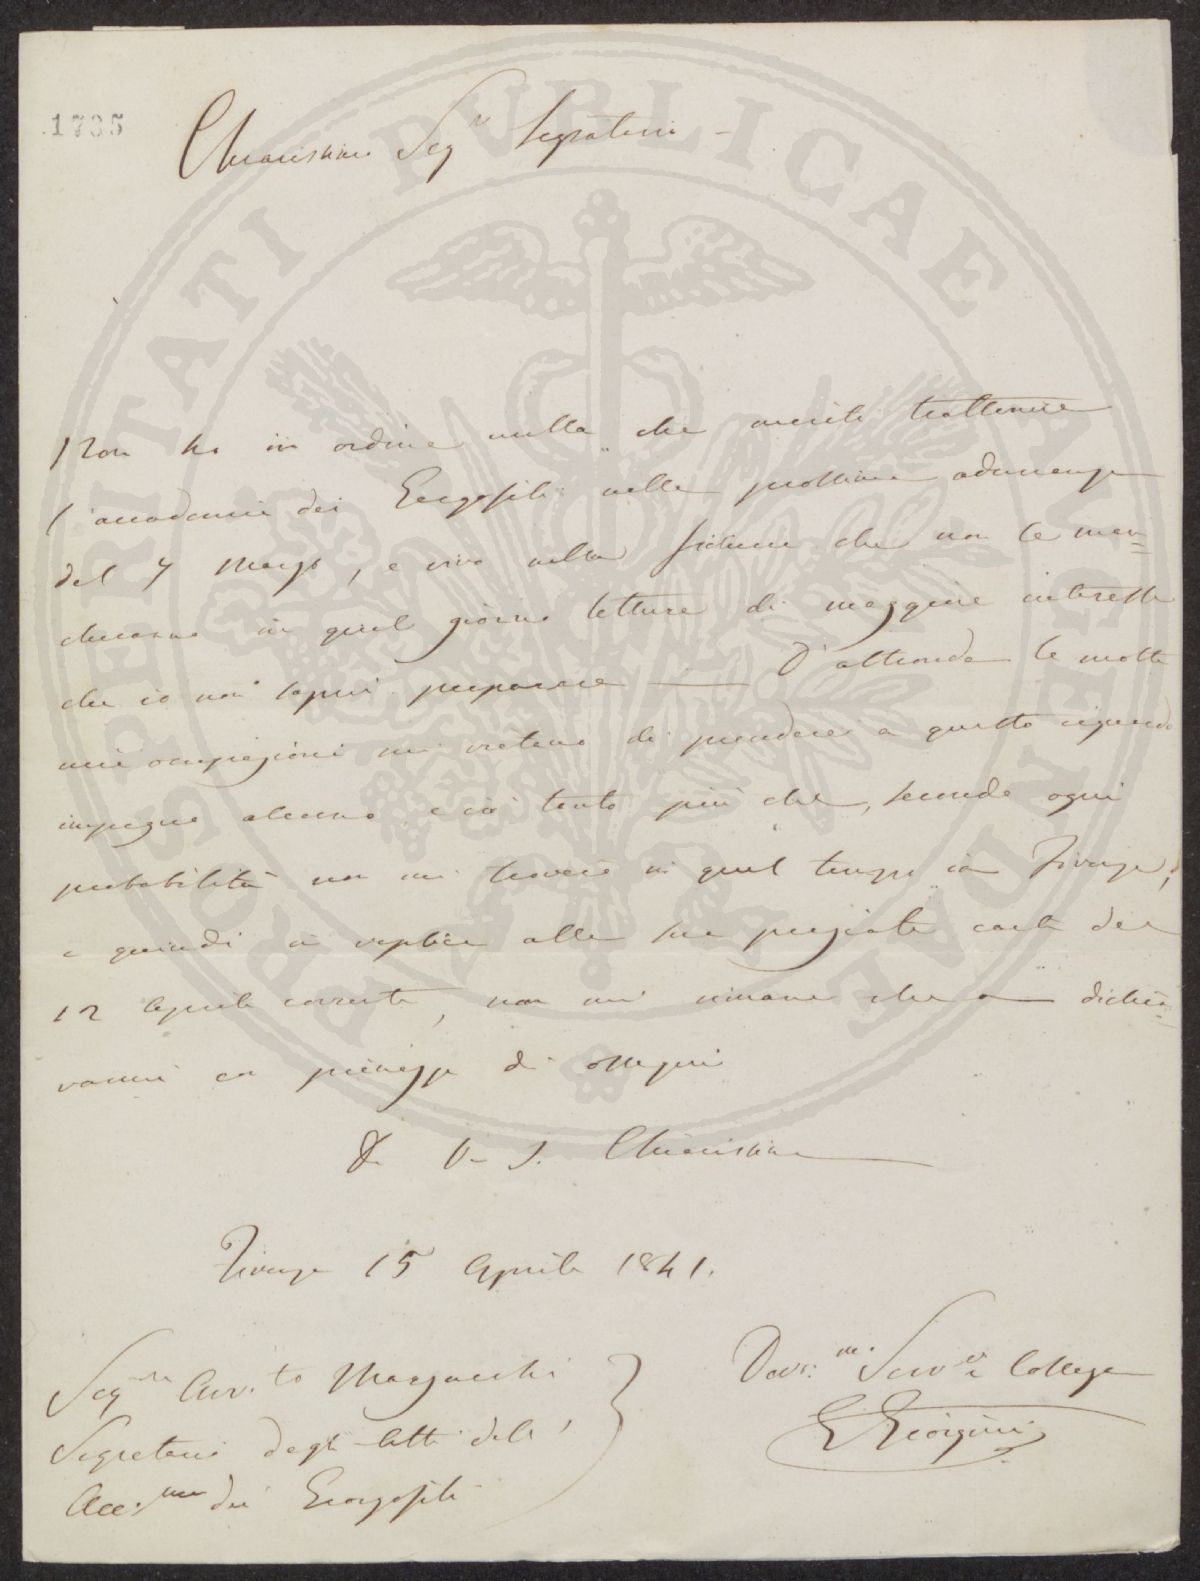 1735
Chiarissimo Sigr Segretario -
Non ho in ordine nulla che meriti trattenere
l'accademia dei Georgofili nella prossima adunanza
del 7 Marzo, e vivo nella fiducia che non le man=
cheranno in quel giorno letture di maggiore interesse
che io non saprei preparare — D'altronde le molte
mie occupazioni mi vietano di prendere a questo riguardo
impegno alcuno e ciò tanto più che, secondo ogni
probabilità non mi troverò in quel tempo in Firenze;
e quindi in replica alla sua pregiata carta del
12 Aprile corrente, non mi rimane che a dichia=
rarmi con pienezza di ossequi
Di V. S. Chiarissima
Firenze 15 Aprile 1841.
Devmo. Servre e Collega
G Giorgini
Sigre Avv.to Marzucchi
Segretario degli Atti dell'
Acc.mia dei Georgofili
PROSPERITATI PUBLICAE AUGENDAE